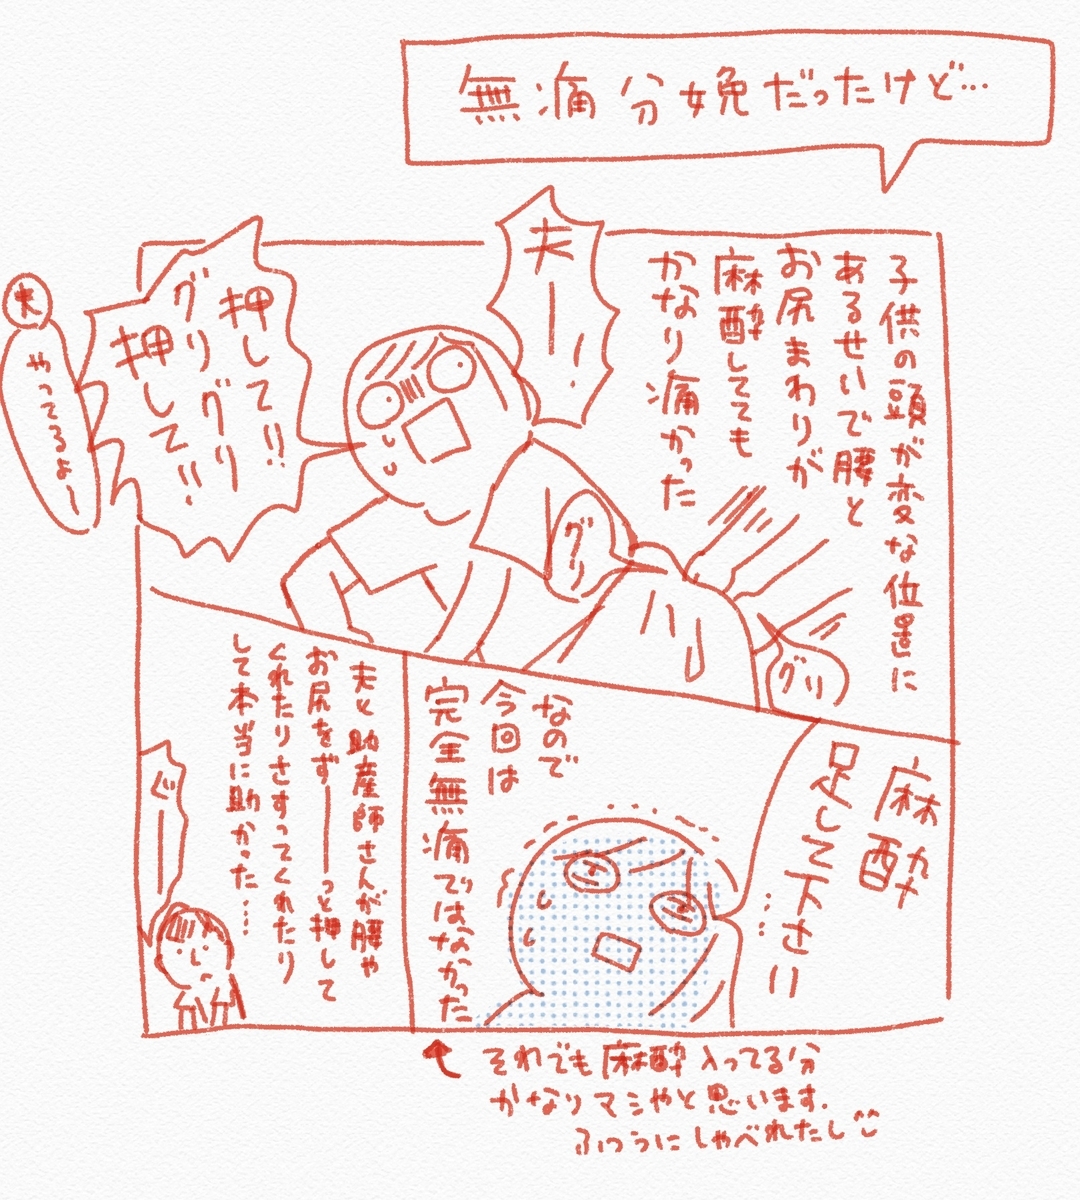 無痛分娩だったけど…
子供の頭が変な位置に
あるせいで腰と
お尻まわりが
麻酔してても
かなり痛かった
夫ーー!
押して!!
グリグリ
押してィ!!
夫
やってるよ〜
グリ
グリ
麻酔
足して下さい
…
なので
今回は
完全無痛ではなかった
夫と助産師さんが腰や
お尻をずーーーっと押して
くれたりさすってくれたり
して本当に助かった……
ぐーー
それでも麻酔入ってる分
かなりマシやと思います.
ふつうにしゃべれたし